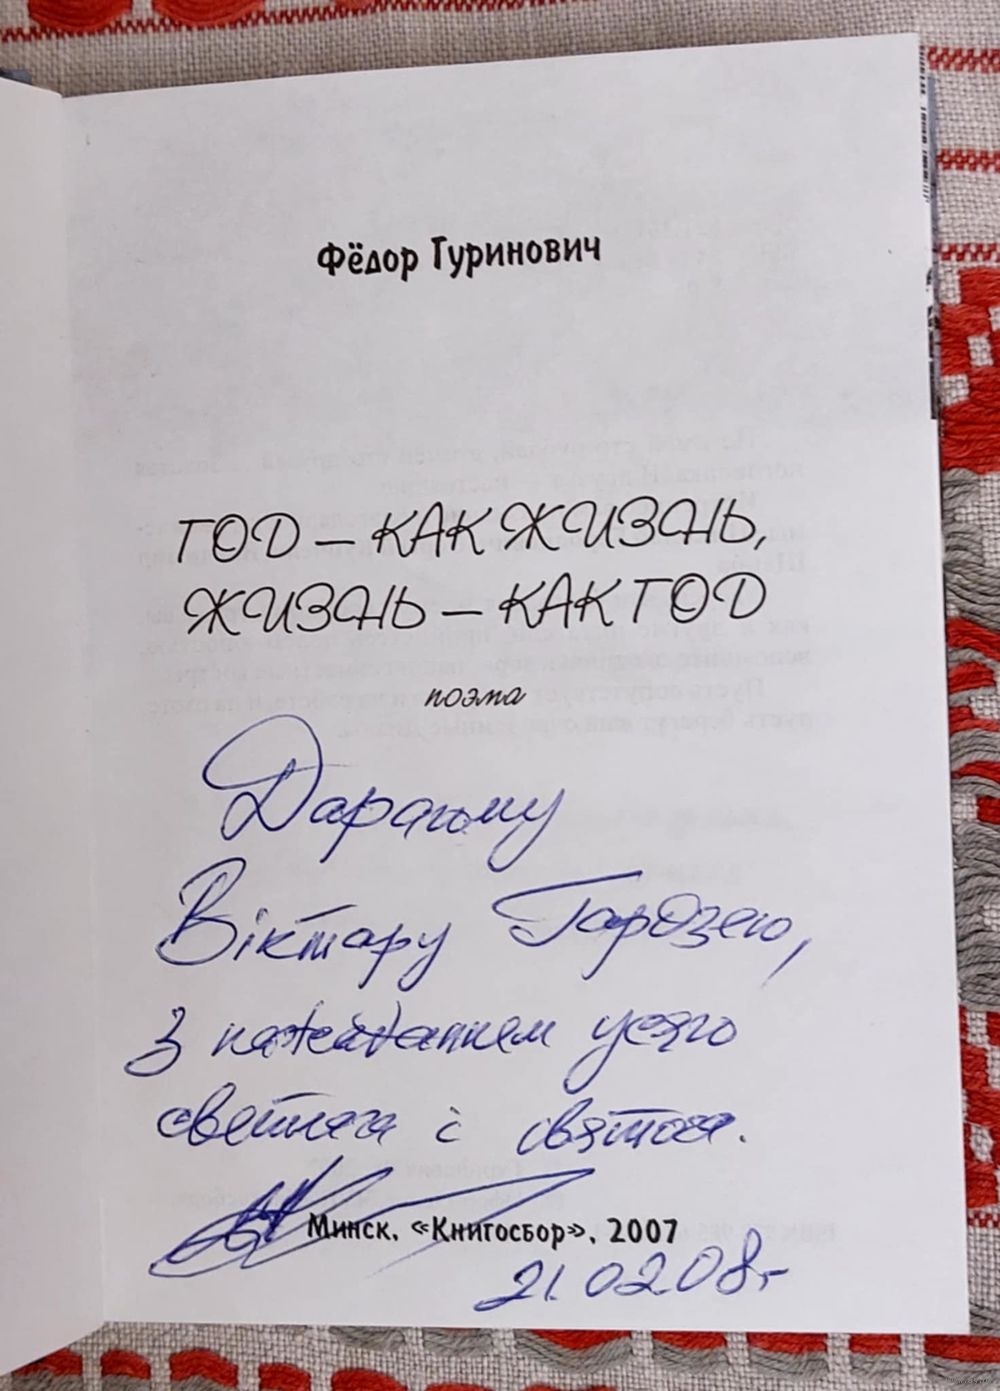 Фёдор Гуринович
ГОД – КАК ЖИЗНЬ,
ЖИЗНЬ – КАК ГОД
поэма
Дарагому
Віктару Гардзею,
З пажаданнем усяго
светлага і святога.
Минск, «Книгосбор», 2007
21.02.08г